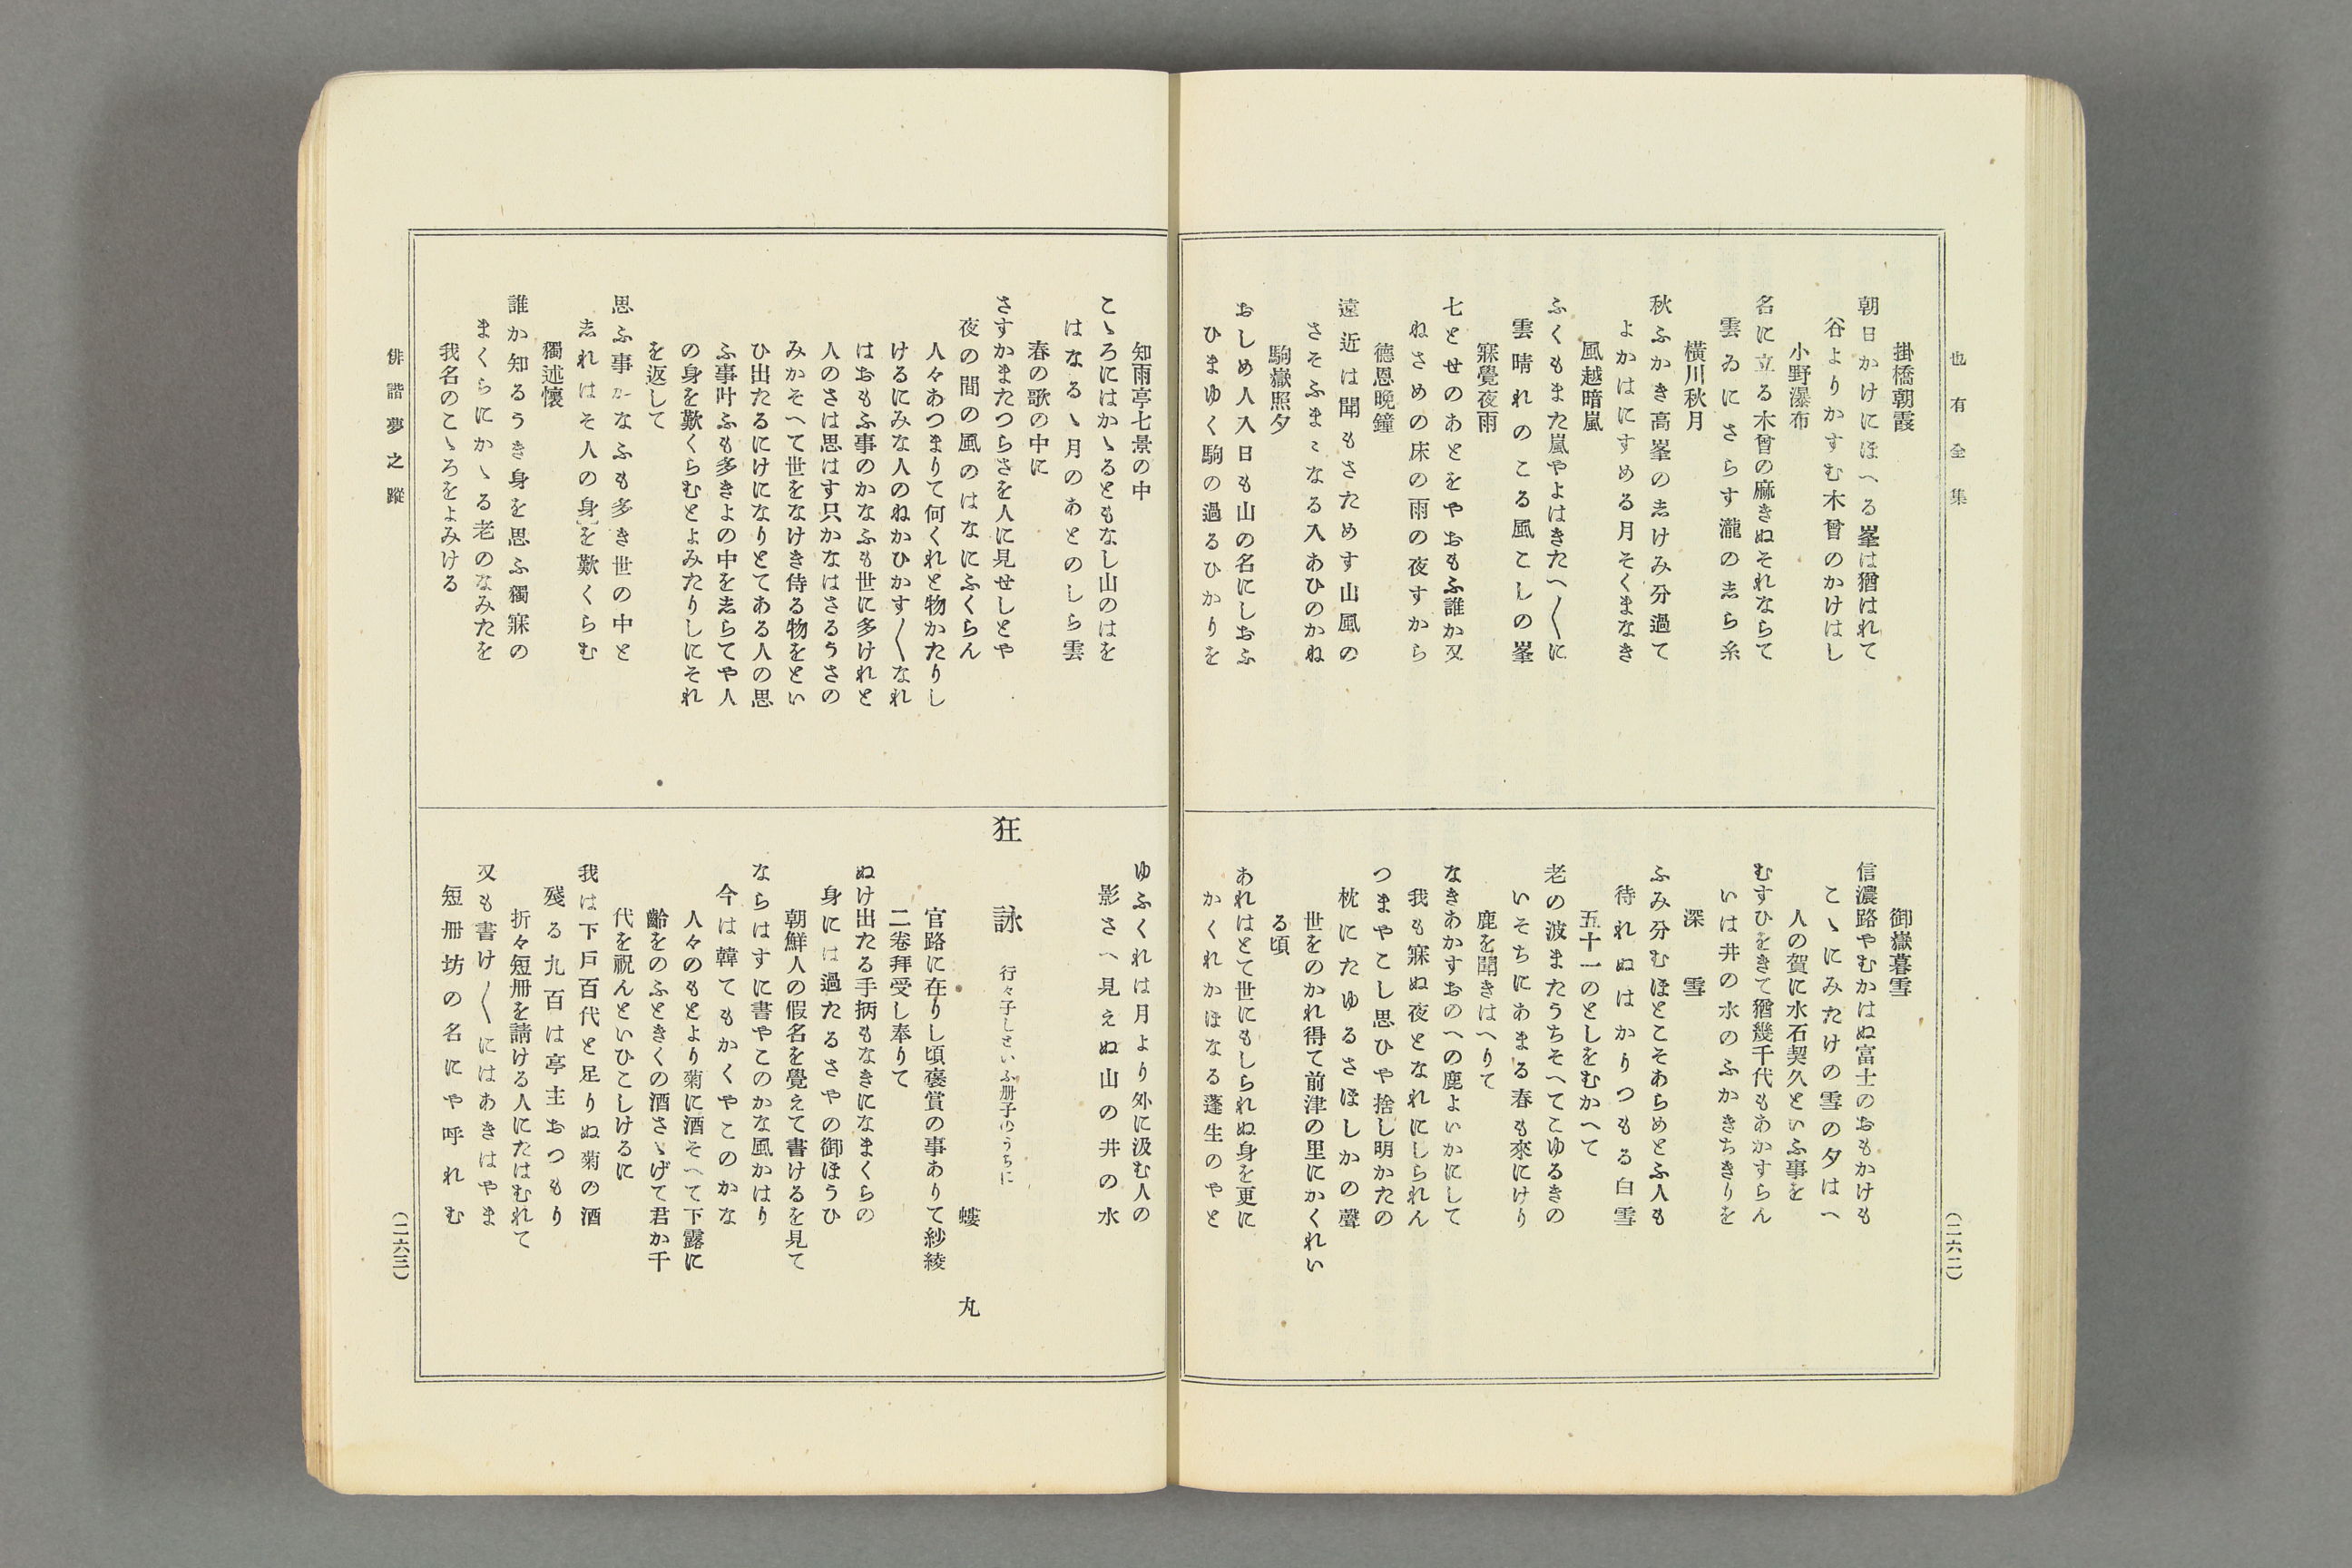 也有全集
掛橋朝霞
朝日かけにほへる峯は猶はれて
谷よりかすむ木曾のかけはし
小野瀑布
名に立る木曾の麻きぬそれならて
雲ゐにさらす瀧の志ら糸
橫川秋月
秋ふかき高峯の志けみ分過て
よかはにすめる月そくまなき
風越暗嵐
ふくもまた嵐やよはきたへ〳〵に
雲晴れのこる風こしの峯
寐覺夜雨
七とせのあとをやおもふ誰か又
ねさめの床の雨の夜すから
德恩晚鐘
遠近は聞もさためす山風の
さそふまゝなる入あひのかね
駒嶽照夕
おしめ人入日も山の名にしおふ
ひまゆく駒の過るひかりを
御嶽暮雪
信濃路やむかはぬ富士のおもかけも
こゝにみたけの雪の夕はへ
人の賀に水石契久といふ事を
むすひをきて猶幾千代もあかすらん
いは井の水のふかきちきりを
深雪
ふみ分むほとこそあらめとふ人も
待れぬはかりつもる白雪
五十一のとしをむかへて
老の波またうちそへてこゆるきの
いそちにあまる春も來にけり
鹿を聞きはへりて
なきあかすおのへの鹿よいかにして
我も寐ぬ夜となれにしられん
つまやこし思ひや捨し明かたの
枕にたゆるさほしかの聲
世をのかれ得て前津の里にかくれい
る頃
あれはとて世にもしられぬ身を更に
かくれかほなる蓬生のやと
(二六二)
知雨亭七景の中
こゝろにはかゝるともなし山のはを
はなるゝ月のあとのしら雲
春の歌の中に
さすかまたつらさを人に見せしとや
夜の間の風のはなにふくらん
人々あつまりて何くれと物かたりし
けるにみな人のねかひかす〳〵なれ
はおもふ事のかなふも世に多けれと
人のさは思はす只かなはさるうさの
みかそへて世をなけき侍る物をとい
ひ出たるにけになりとてある人の思
ふ事叶ふも多きよの中を志らてや人
の身を歎くらむとよみたりしにそれ
を返して
思ふ事かなふも多き世の中と
志れはそ人の身を歎くらむ
獨述懷
誰か知るうき身を思ふ獨寐の
まくらにかゝる老のなみたを
我名のこゝろをよみける
ゆふくれは月より外に汲む人の
影さへ見えぬ山の井の水
狂詠 行々子しといふ册子のうちに
螻丸
官路に在りし頃褒賞の事ありて紗綾
二卷拜受し奉りて
ぬけ出たる手柄もなきになまくらの
身には過たるさやの御ほうひ
朝鮮人の假名を覺えて書けるを見て
ならはすに書やこのかな風かはり
今は韓てもかくやこのかな
人々のもとより菊に酒そへて下露に
齡をのふときくの酒さゝげて君か千
代を祝んといひこしけるに
我は下戸百代と足りぬ菊の酒
殘る九百は亭主おつもり
折々短册を請ける人にたはむれて
又も書け〳〵にはあきはやま
短册坊の名にや呼れむ
俳諧夢之蹤
(二六三)